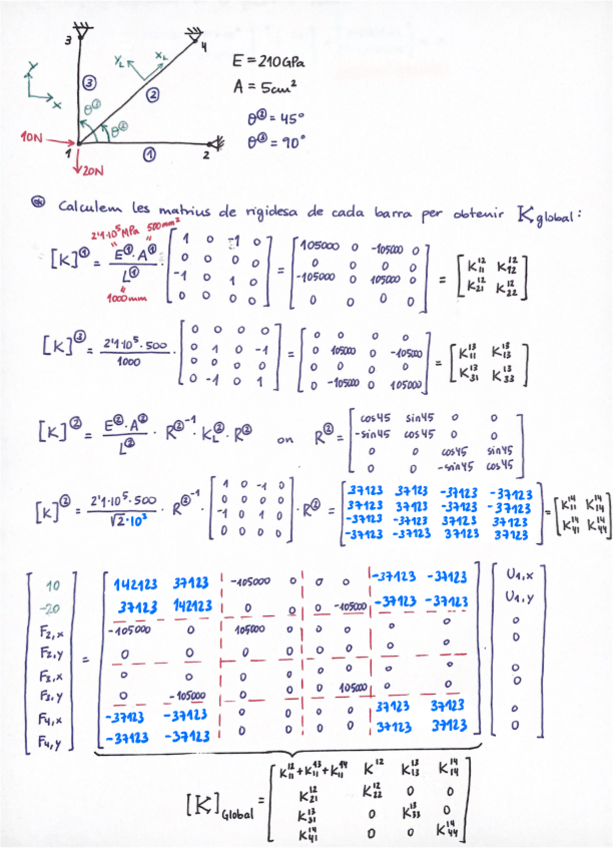 3
4
Y
X
Y_L
X_L
③
②
①
θ^②
θ^③
10N
1
2
20N
E = 210GPa
A = 5cm²
θ^② = 45°
θ^③ = 90°
Calculem les matrius de rigidesa de cada barra per obtenir K global :
2'1·10⁵ MPa 500mm²
[K]^① = E^①·A^① / L^① · [1 0 -1 0; 0 0 0 0; -1 0 1 0; 0 0 0 0] = [105000 0 -105000 0; 0 0 0 0; -105000 0 105000 0; 0 0 0 0] = [K_11^12 K_12^12; K_21^12 K_22^12]
1000mm
[K]^③ = 2'1·10⁵·500 / 1000 · [0 0 0 0; 0 1 0 -1; 0 0 0 0; 0 -1 0 1] = [0 0 0 0; 0 105000 0 -105000; 0 0 0 0; 0 -105000 0 105000] = [K_11^13 K_13^13; K_31^13 K_33^13]
[K]^② = E^②·A^② / L^② · R^②⁻¹ · K_L^② · R^② on R^② = [cos45 sin45 0 0; -sin45 cos45 0 0; 0 0 cos45 sin45; 0 0 -sin45 cos45]
[K]^② = 2'1·10⁵·500 / √2·10³ · R^②⁻¹ · [1 0 -1 0; 0 0 0 0; -1 0 1 0; 0 0 0 0] · R^② = [37123 37123 -37123 -37123; 37123 37123 -37123 -37123; -37123 -37123 37123 37123; -37123 -37123 37123 37123] = [K_11^14 K_14^14; K_41^14 K_44^14]
10 142123 37123 -105000 0 0 0 -37123 -37123 U1,x
-20 37123 142123 0 0 0 -105000 -37123 -37123 U1,y
F2,x -105000 0 105000 0 0 0 0 0 0
F2,y = 0 0 0 0 0 0 0 0 0
F2,x 0 0 0 0 0 0 0 0 0
F3,y 0 -105000 0 0 0 105000 0 0 0
F4,x -37123 -37123 0 0 0 0 37123 37123 0
F4,y -37123 -37123 0 0 0 0 37123 37123 0
[K]Global = [K_11^12+K_11^13+K_11^14 K^12 K_13^13 K_14^14; K_21^12 K_22^12 0 0; K_31^13 0 K_33^13 0; K_41^14 0 0 K_44^14]